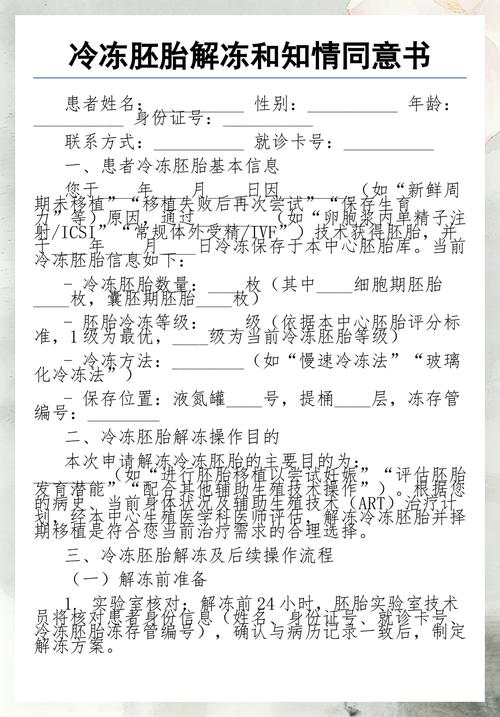 冷冻胚胎解冻和知情同意书
患者姓名：__________ 性别：__________ 年龄：
__________ 身份证号：__________
联系方式：__________ 就诊卡号：__________
一、患者冷冻胚胎基本信息
您于____年____月____日因________（如“新鲜周
期未移植”“移植失败后再次尝试”“保存生育
力”等）原因，通过________（如“卵胞浆内单精子注
射/ICSI”“常规体外受精/IVF”）技术获得胚胎，并
于____年____月____日冷冻保存于本中心胚胎库。当前
冷冻胚胎信息如下：
- 冷冻胚胎数量：____枚（其中____细胞期胚胎
____枚，囊胚期胚胎____枚）
- 胚胎冷冻等级：____级（依据本中心胚胎评分标
准，1级为最优，____级为当前冷冻胚胎等级）
- 冷冻方法：________（如“慢速冷冻法”“玻璃
化冷冻法”）
- 保存位置：液氮罐____号，提桶____层，冻存管
编号：________
二、冷冻胚胎解冻操作目的
本次申请解冻冷冻胚胎的主要目的为：
________（如“进行胚胎移植以尝试妊娠”“评估胚胎
发育潜能”“配合其他辅助生殖技术操作”）。根据您
的病史、当前身体状况及辅助生殖技术（ART）治疗计
划，经本中心生殖医学科医师评估，解冻冷冻胚胎并择
期移植是符合您当前治疗需求的合理选择。
三、冷冻胚胎解冻及后续操作流程
（一）解冻前准备
1. 实验室核对：解冻前24小时，胚胎实验室技术
员将核对患者身份信息（姓名、身份证号、就诊卡号、
冷冻胚胎冻存管编号），确认与病历记录一致后，制定
解冻方案。